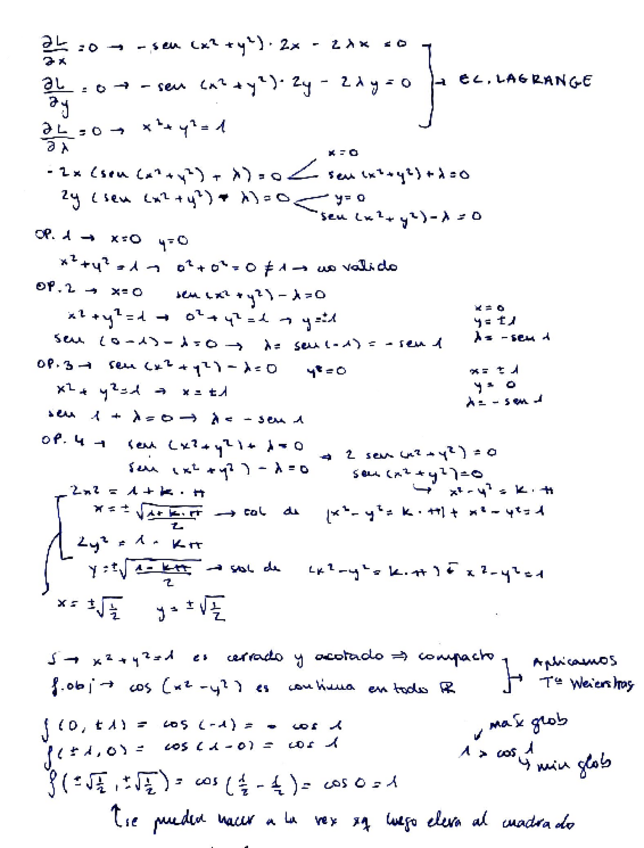 ∂L/∂x = 0 → - sen (x² + y²) · 2x - 2λx = 0
∂L/∂y = 0 → - sen (x² + y²) · 2y - 2λy = 0 → EC. LAGRANGE
∂L/∂λ = 0 → x² + y² = 1
- 2x (sen (x² + y²) + λ) = 0 x = 0
sen (x² + y²) + λ = 0
2y (sen (x² + y²) + λ) = 0 y = 0
sen (x² + y²) - λ = 0
OP. 1 → x=0 y=0
x² + y² = 1 → 0² + 0² = 0 ≠ 1 → no valido
OP. 2 → x=0 sen (x² + y²) - λ = 0
x² + y² = 1 → 0² + y² = 1 → y = ±1
sen (0-1) - λ = 0 → λ = sen (-1) = - sen 1
x = 0
y = ±1
λ = - sen 1
OP. 3 → sen (x² + y²) - λ = 0 y = 0
x² + y² = 1 → x = ±1
sen 1 + λ = 0 → λ = - sen 1
x = ±1
y = 0
λ = - sen 1
OP. 4 → sen (x² + y²) + λ = 0
sen (x² + y²) - λ = 0 → 2 sen (x² + y²) = 0
sen (x² + y²) = 0
→ x² - y² = k · π
2x² = 1 + k · π
x = ± √(1 + k · π / 2) → sol de (x² - y² = k · π) + x² - y² = 1
2y² = 1 - kπ
y = ± √(1 - kπ / 2) → sol de (x² - y² = k · π) x² - y² = 1
x = ± √(1/2) y = ± √(1/2)
S → x² + y² = 1 es cerrado y acotado ⇒ compacto
f. obj → cos (x² - y²) es continua en todo ℝ
→ Aplicamos
Tª Weierstras
f (0, ±1) = cos (-1) = - cos 1
f (±1, 0) = cos (1-0) = cos 1
f (± √(1/2), ± √(1/2)) = cos (1/2 - 1/2) = cos 0 = 1
max glob
1 > cos 1
min glob
↑ se pueden hacer a la vez xq luego eleva al cuadrado